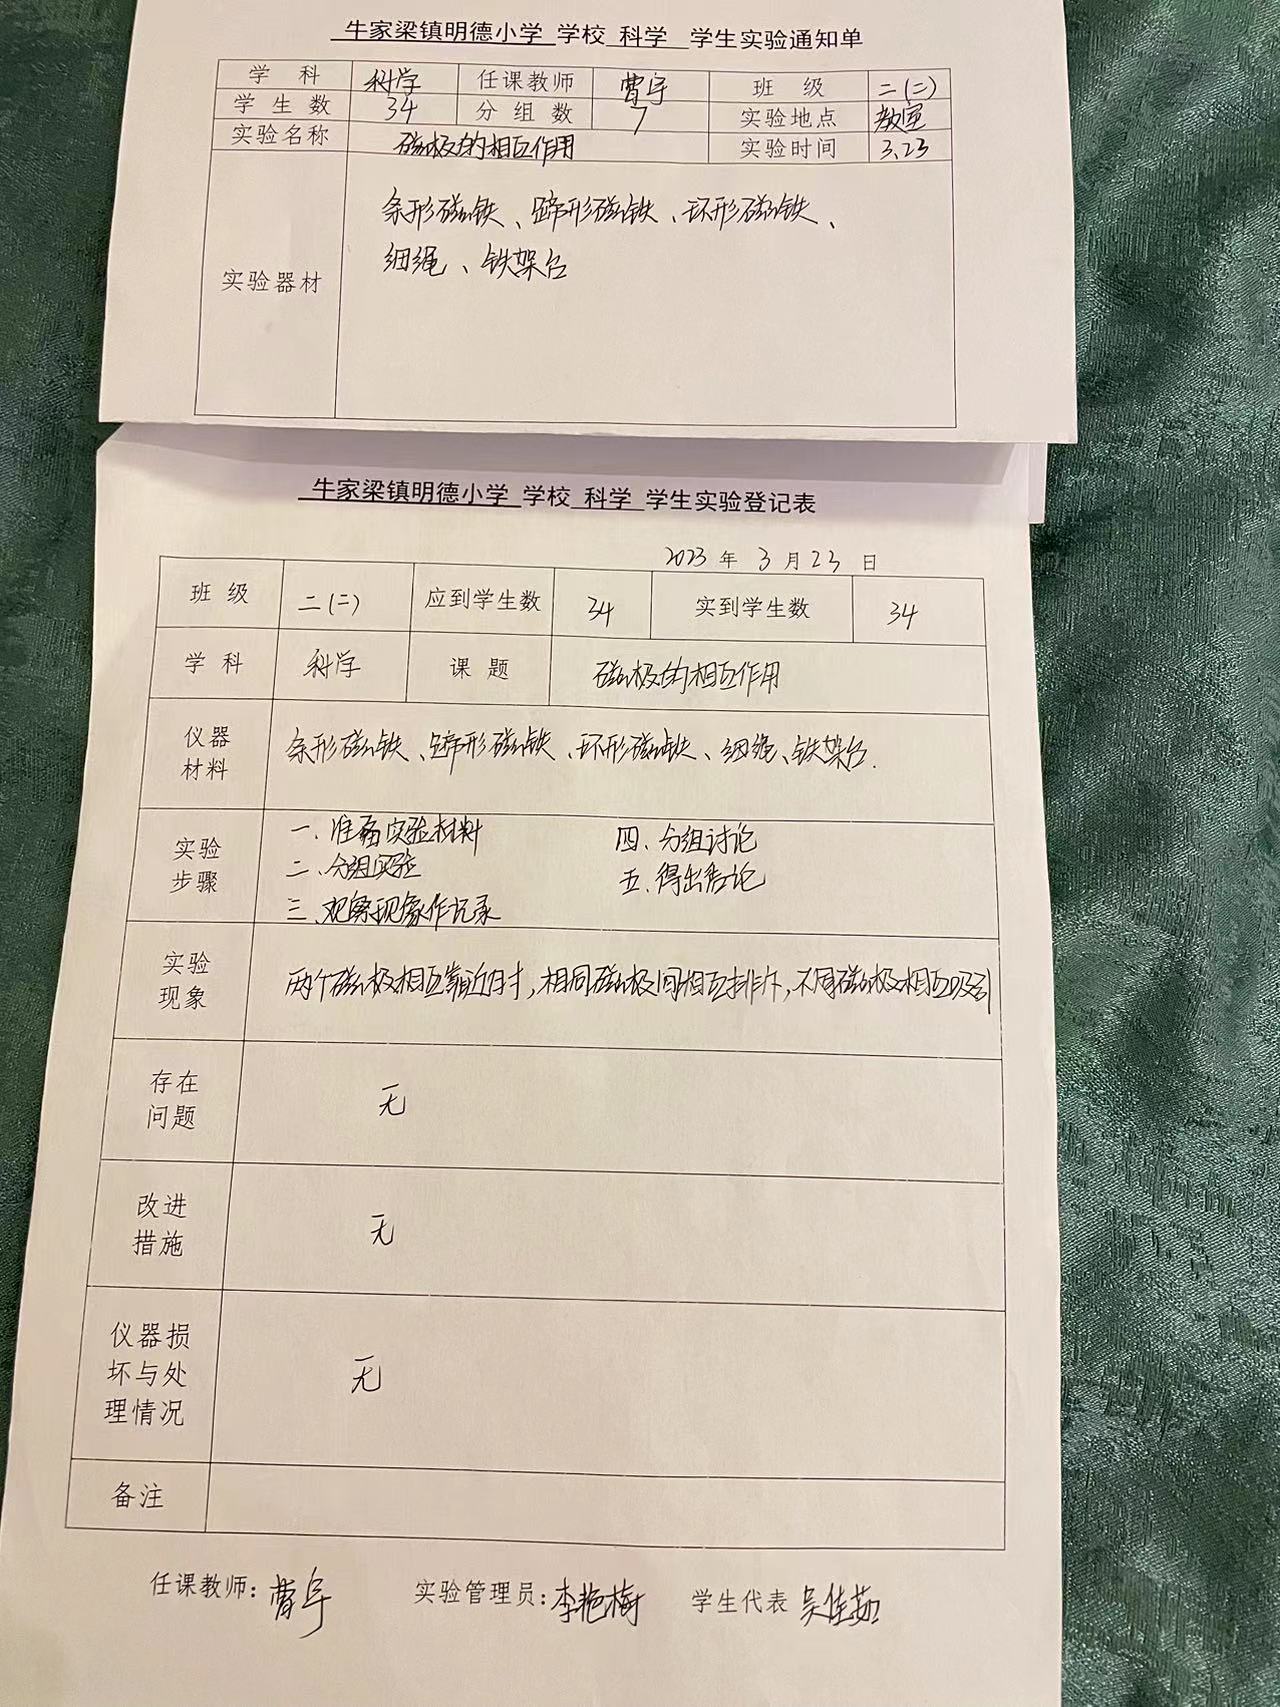 牛家梁镇明德小学 学校 科学 学生实验通知单
学 科 科学 任课教师 曹宇 班 级 二(二)
学 生 数 34 分 组 数 7 实验地点 教室
实验名称 磁极的相互作用 实验时间 3.23
实验器材
条形磁铁、蹄形磁铁、环形磁铁、
细绳、铁架台
牛家梁镇明德小学 学校 科学 学生实验登记表
2023 年 3 月 23 日
班 级 二(二) 应到学生数 34 实到学生数 34
学 科 科学 课 题 磁极的相互作用
仪器
材料
条形磁铁、蹄形磁铁、环形磁铁、细绳、铁架台.
实验
步骤
一、准备实验材料
二、分组实验
三、观察现象作记录
四、分组讨论
五、得出结论
实验
现象
两个磁极相互靠近时,相同磁极间相互排斥,不同磁极相互吸引
存在
问题
无
改进
措施
无
仪器损
坏与处
理情况
无
备注
任课教师:曹宇 实验管理员:李艳梅 学生代表 吴佳茹